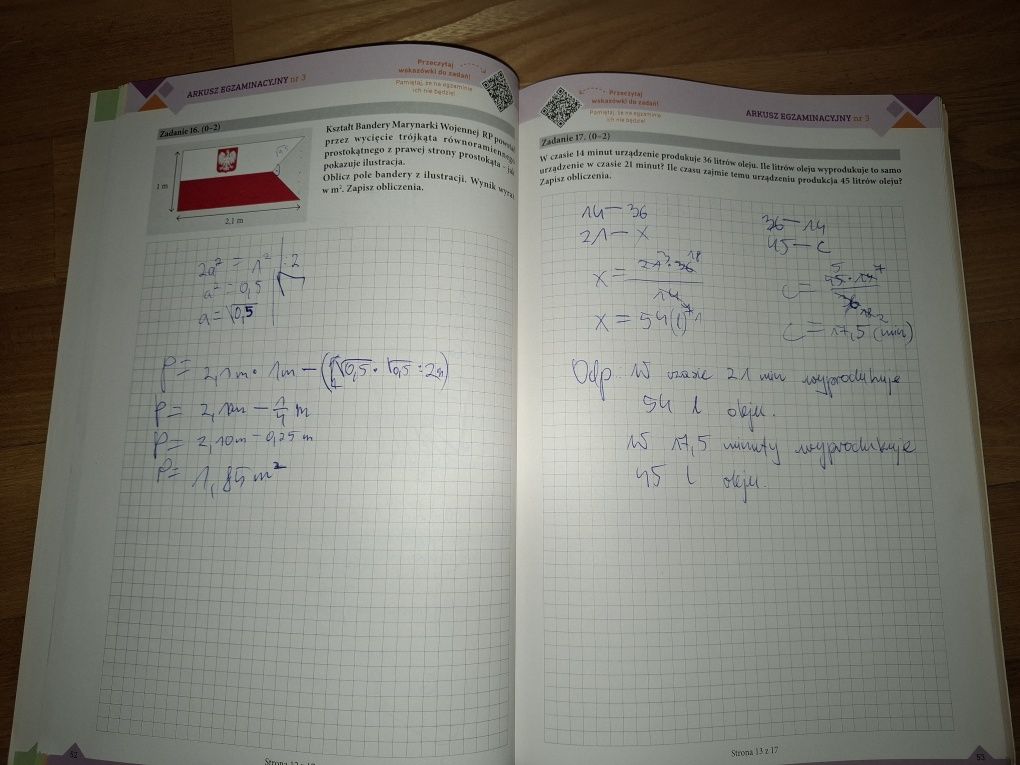 ARKUSZ EGZAMINACYJNY nr 3
Przeczytaj
wskazówki do zadań!
Pamiętaj, że na egzaminie
ich nie będzie!
Zadanie 16. (0–2)
Kształt Bandery Marynarki Wojennej RP
przez wycięcie trójkąta równoramiennego
prostokątnego z prawej strony prostokąta – jak
pokazuje ilustracja.
Oblicz pole bandery z ilustracji. Wynik wyraź
w m². Zapisz obliczenia.
1 m
2,1 m
2a² = 1² | :2
a² = 0,5
a = √0,5
P = 2,1m · 1m – (√0,5 · √0,5 : 2m)
P = 2,1m – 1/4 m
P = 2,10m – 0,25m
P = 1,85m²
52
Przeczytaj
wskazówki do zadań!
Pamiętaj, że na egzaminie
ich nie będzie!
ARKUSZ EGZAMINACYJNY nr 3
Zadanie 17. (0–2)
W czasie 14 minut urządzenie produkuje 36 litrów oleju. Ile litrów oleju wyprodukuje to samo
urządzenie w czasie 21 minut? Ile czasu zajmie temu urządzeniu produkcja 45 litrów oleju?
Zapisz obliczenia.
14 – 36
21 – x
x = 21 · 36 / 14
x = 54 (l)
36 – 14
45 – c
c = 45 · 14 / 36
c = 17,5 (min)
Odp. W czasie 21 min wyprodukuje
54 l oleju.
W 17,5 minuty wyprodukuje
45 l oleju.
Strona 13 z 17
53